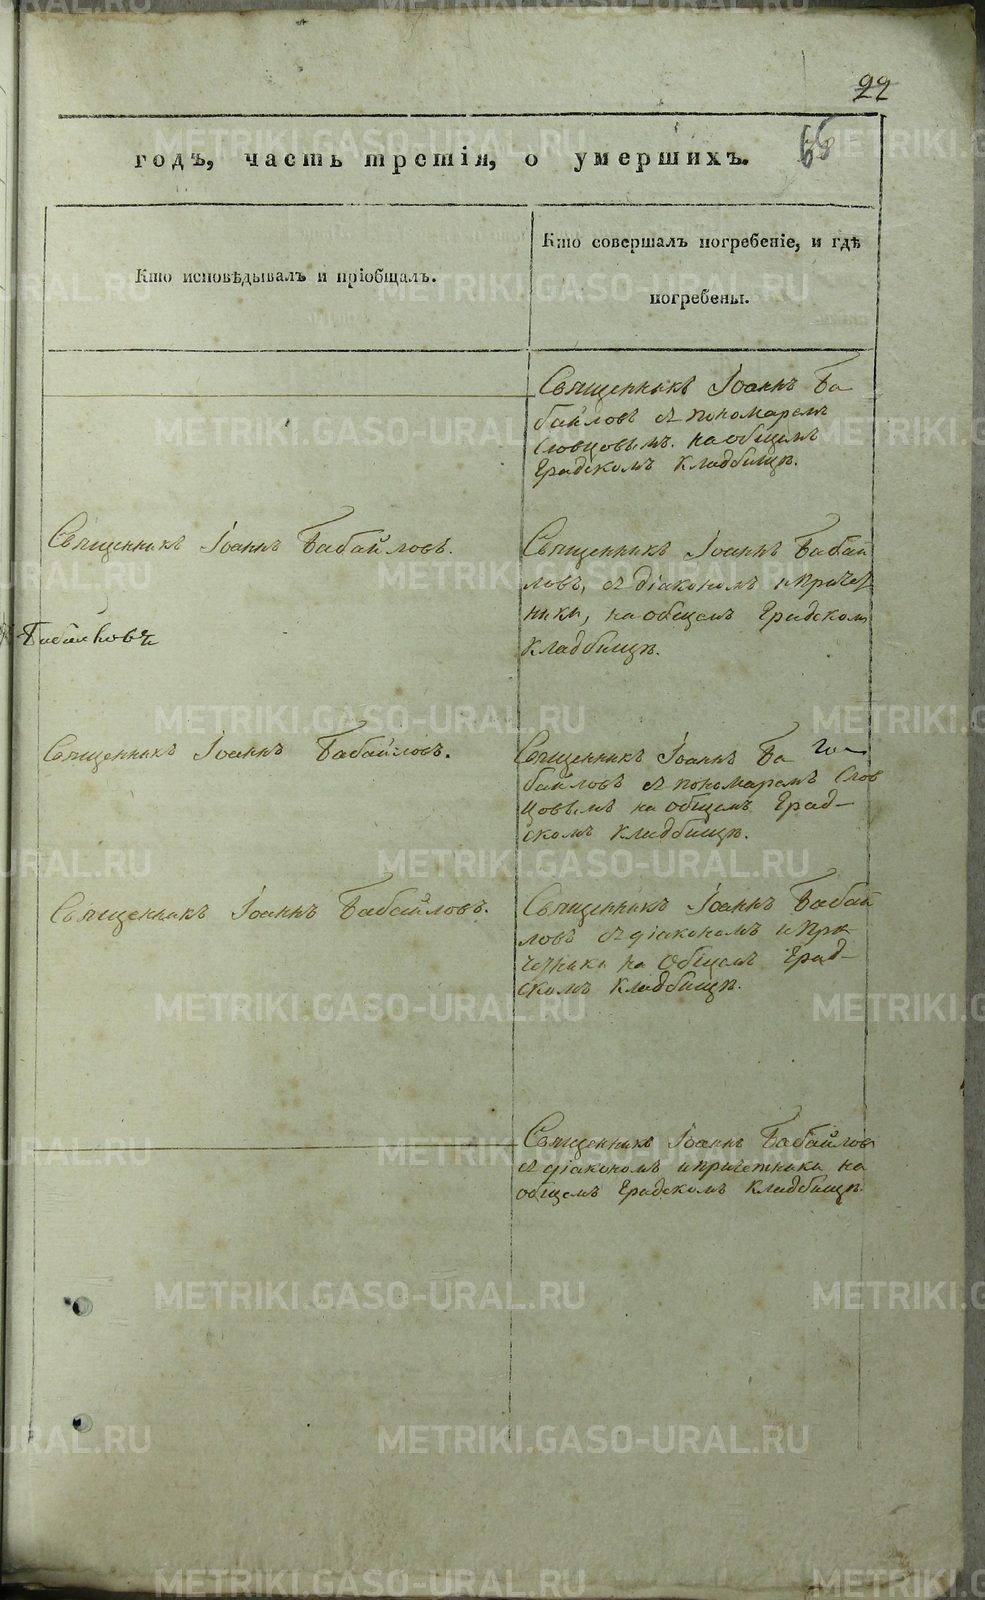 22
65
годъ, часть третія, о умершихъ.
Кто исповѣдывалъ и пріобщалъ.
Кто совершалъ погребеніе, и гдѣ
погребены.
Священникъ Іоаннъ Ба
байловъ съ пономаремъ
Словцовымъ. на общемъ
Градскомъ кладбищѣ.
Священникъ Іоаннъ Бабайловъ.
Священникъ Іоаннъ Бабай
ловъ, съ діакономъ и причет
ники, на общемъ Градском
кладбищѣ.
Священникъ Іоаннъ Бабайловъ.
Священникъ Іоаннъ Ба
байловъ съ пономаремъ Слов
цовымъ на общемъ Град-
скомъ кладбищѣ.
Священникъ Іоаннъ Бабайловъ.
Священникъ Іоаннъ Бабай
ловъ съ діакономъ и при
четники на общемъ Град-
скомъ кладбищѣ.
Священникъ Іоаннъ Бабайлов
съ діакономъ и причетники на
общемъ Градскомъ кладбищѣ.
METRIKI.GASO-URAL.RU